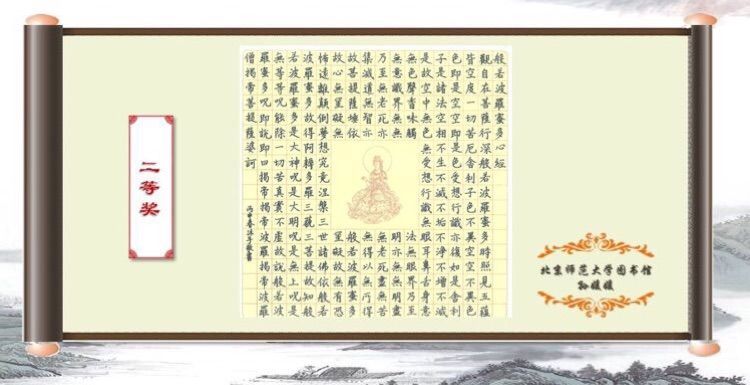 般若波羅蜜多心經
觀自在菩薩行深般若波羅蜜多時照見五蘊
皆空度一切苦厄舍利子色不異空空不異色
色即是空空即是色受想行識亦復如是舍利
子是諸法空相不生不滅不垢不淨不增不減
是故空中無色無受想行識無眼耳鼻舌身意
無色聲香味觸法無眼界乃至
無意識界無無明亦無無明盡
乃至無老死亦無老死盡無苦
集滅道無智亦無得以無所得
故菩提薩埵依般若波羅蜜多
故心無罣礙無罣礙故無有恐
怖遠離顛倒夢想究竟涅槃三世諸佛依般若
波羅蜜多故得阿耨多羅三藐三菩提故知般
若波羅蜜多是大神呪是大明呪是無上呪是
無等等呪能除一切苦真實不虛故說般若波
羅蜜多呪即說呪曰揭帝揭帝波羅揭帝波羅
僧揭帝菩提薩婆訶
丙申春
二等奖
北京师范大学图书馆
孙媛媛